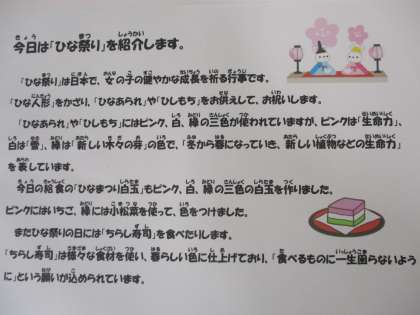 今日は「ひな祭り」を紹介します。
「ひな祭り」は日本で、女の子の健やかな成長を祈る行事です。
「ひな人形」をかざり、「ひなあられ」や「ひしもち」をお供えして、お祝いします。
「ひなあられ」や「ひしもち」にはピンク、白、緑の三色が使われていますが、ピンクは「生命力」、
白は「雪」、緑は「新しい木々の芽」の色で、「冬から春になっていき、新しい植物などの生命力」
を表しています。
今日の給食の「ひなまつり白玉」もピンク、白、緑の三色の白玉を作りました。
ピンクにはいちご、緑には小松菜を使って、色をつけました。
またひな祭りの日には「ちらし寿司」を食べたりします。
「ちらし寿司」は様々な食材を使い、春らしい色に仕上げており、「食べるものに一生困らないよう
に」という願いが込められています。